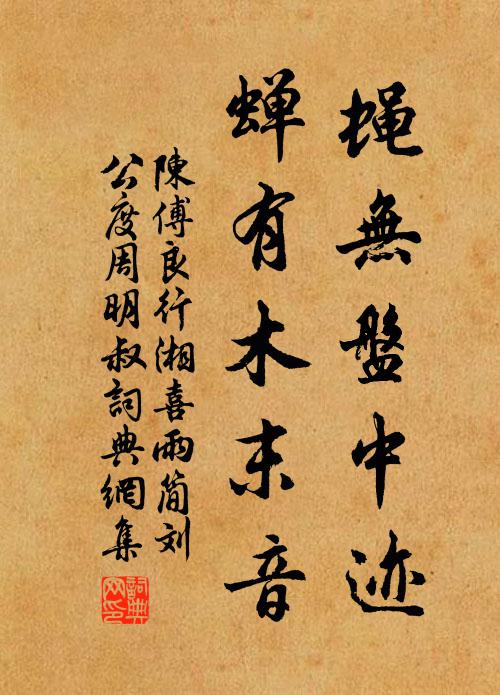 蝇無盤中迹
蝉有木末音
陳傅良行湘喜雨簡刘
公度周明叔詞典網集
詞典网印